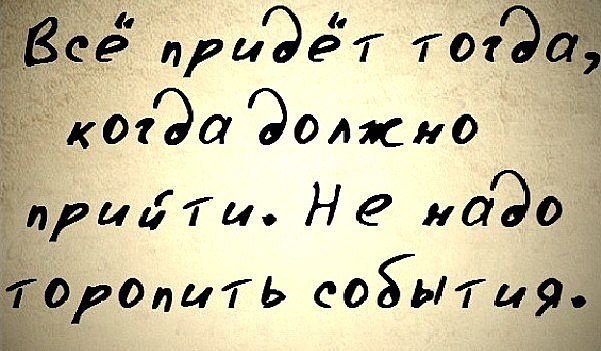 Всё придёт тогда,
когда должно
прийти. Не надо
торопить события.